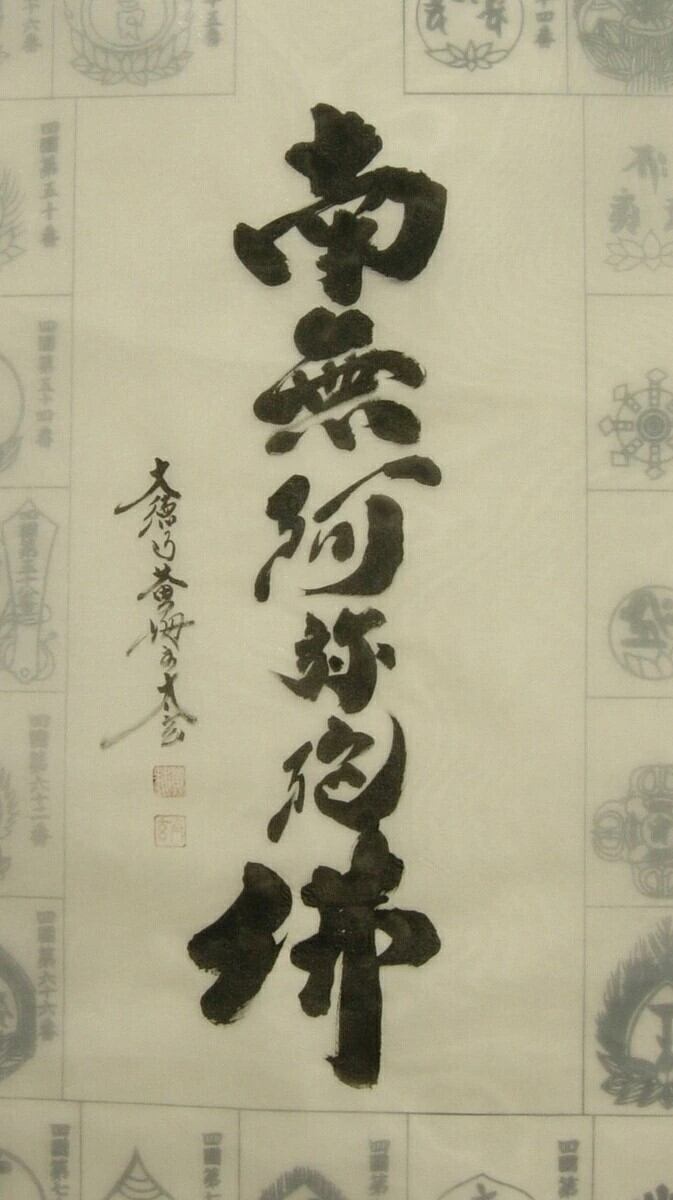 十四番
十五番
十六番
南無阿弥陀佛
大徳 黄梅 太玄
四國第五十番
四國第五十四番
四國第五十八番
四國第六十二番
四國第六十六番
四國
四國第
四國第七
四國第七